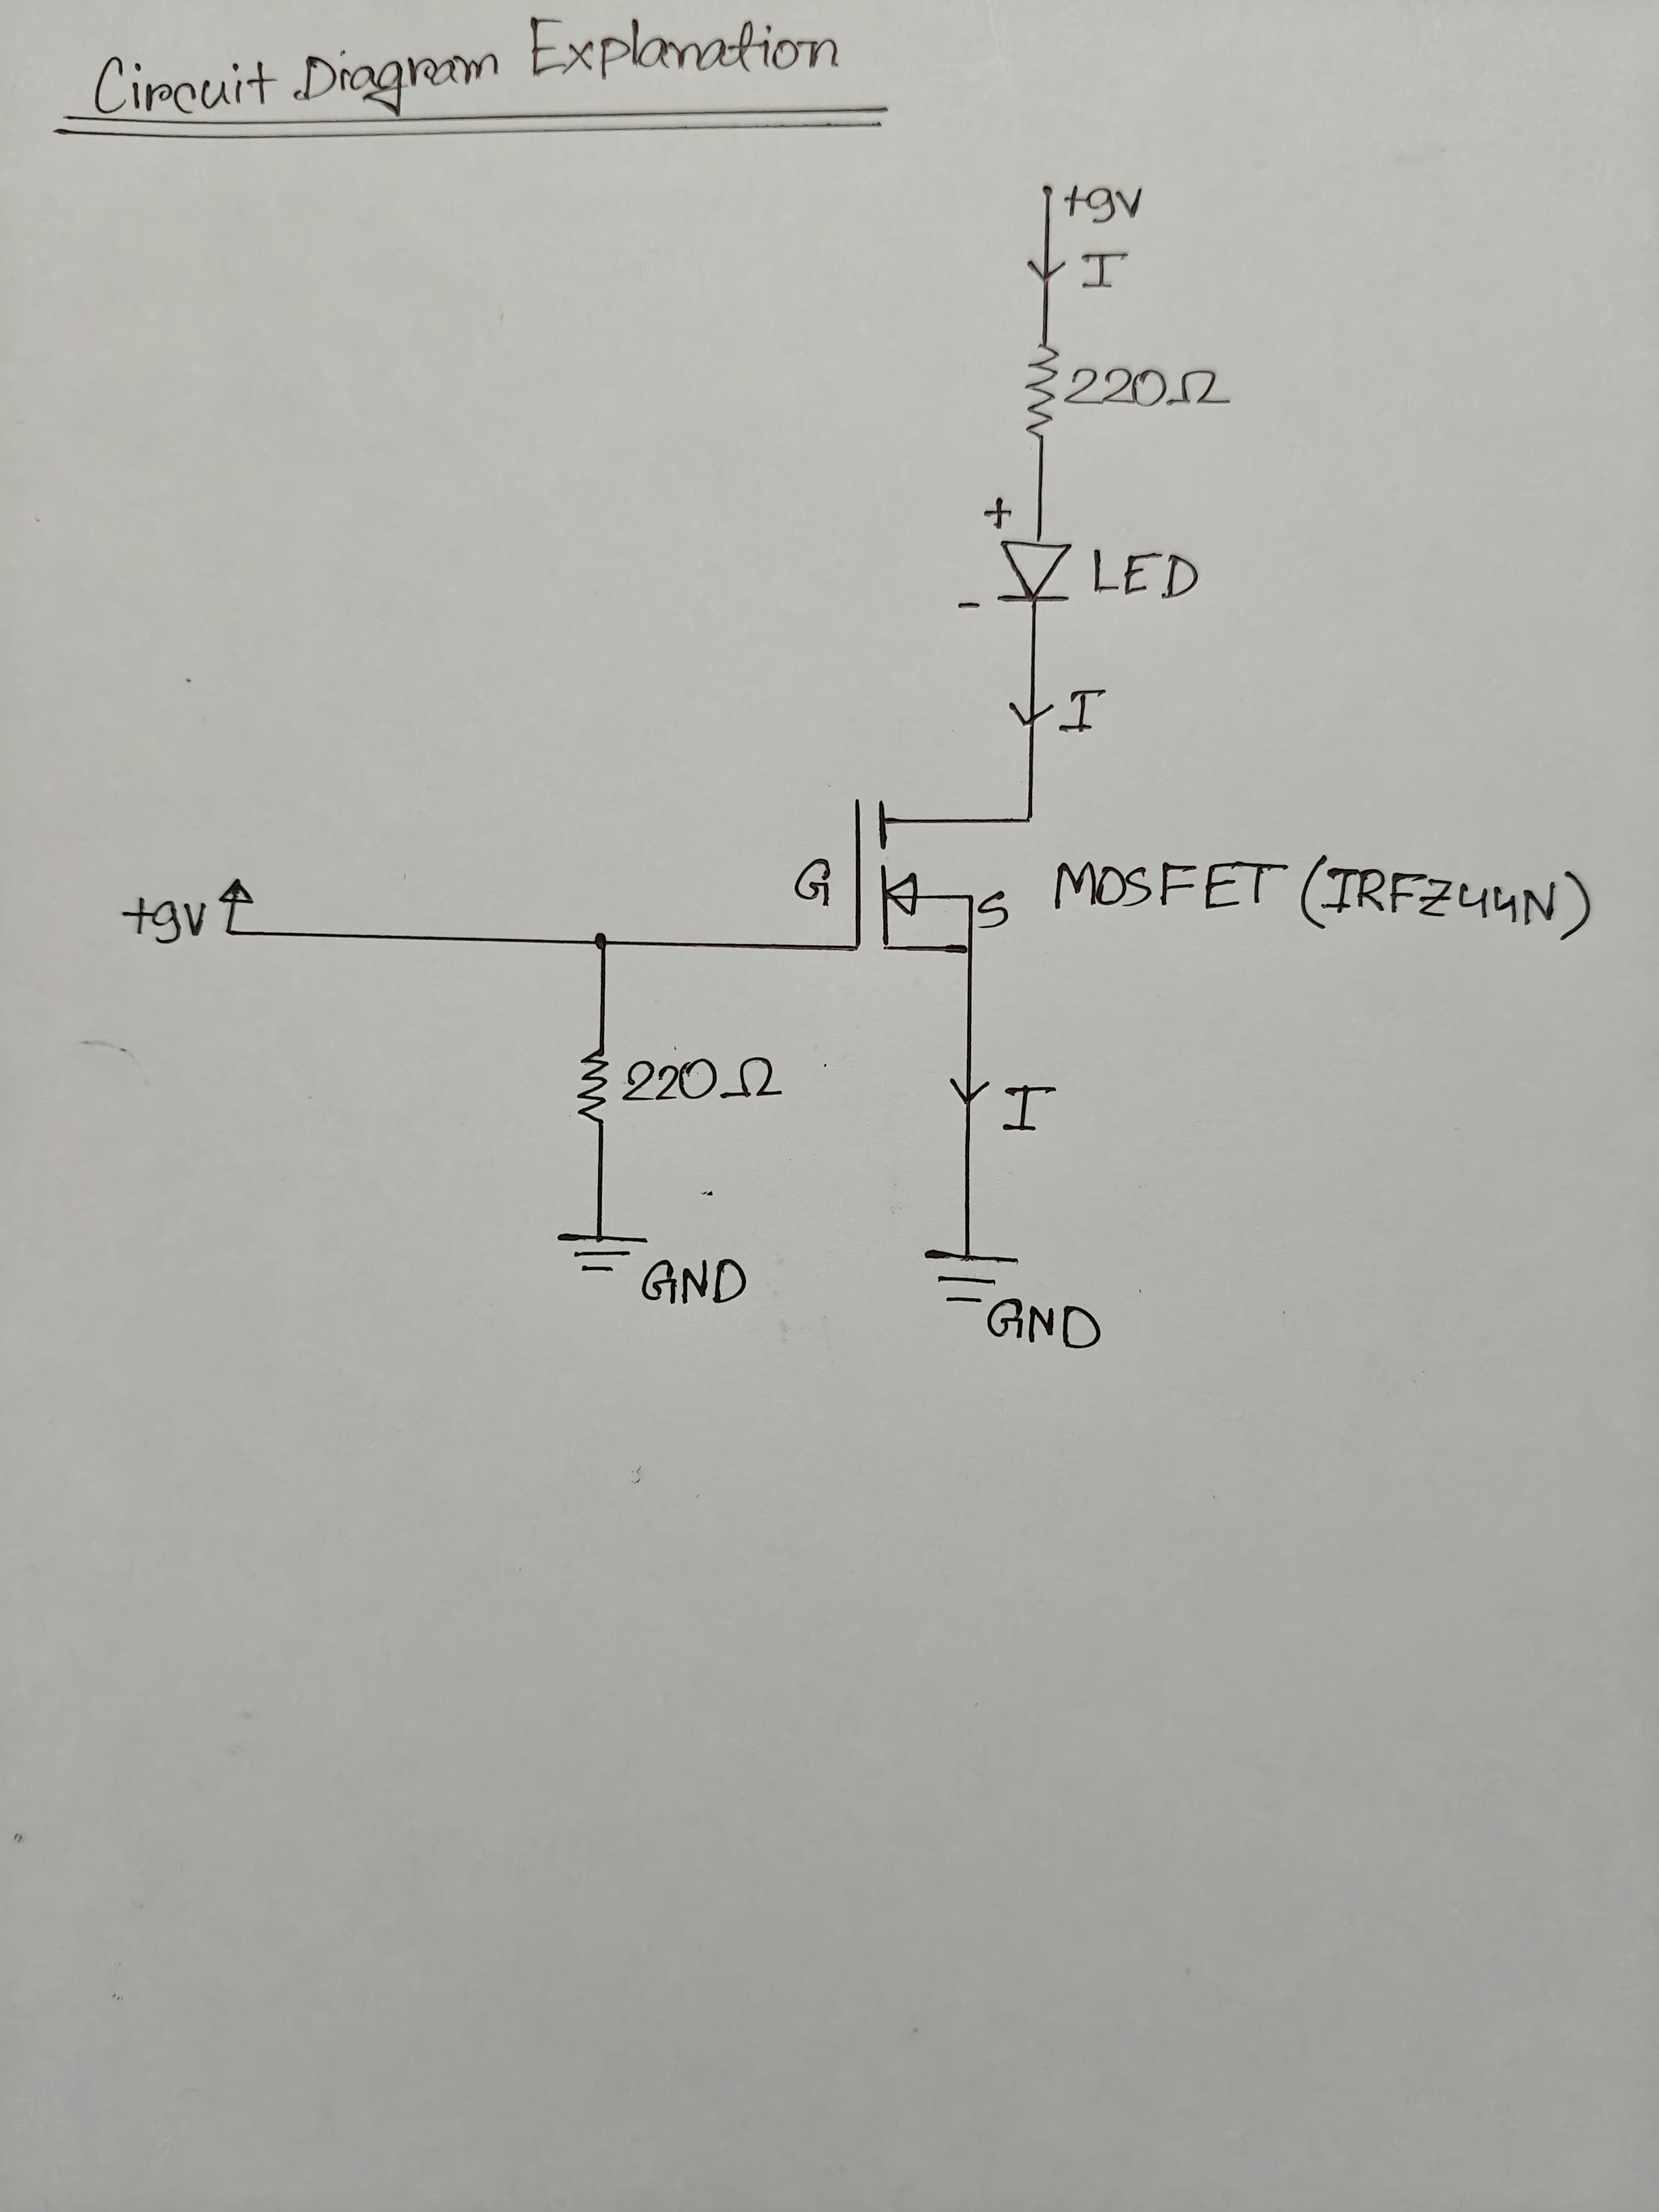 Circuit Diagram Explanation
+9V
I
220Ω
+
LED
-
I
G
S
MOSFET (IRFZ44N)
+9V
220Ω
I
GND
GND